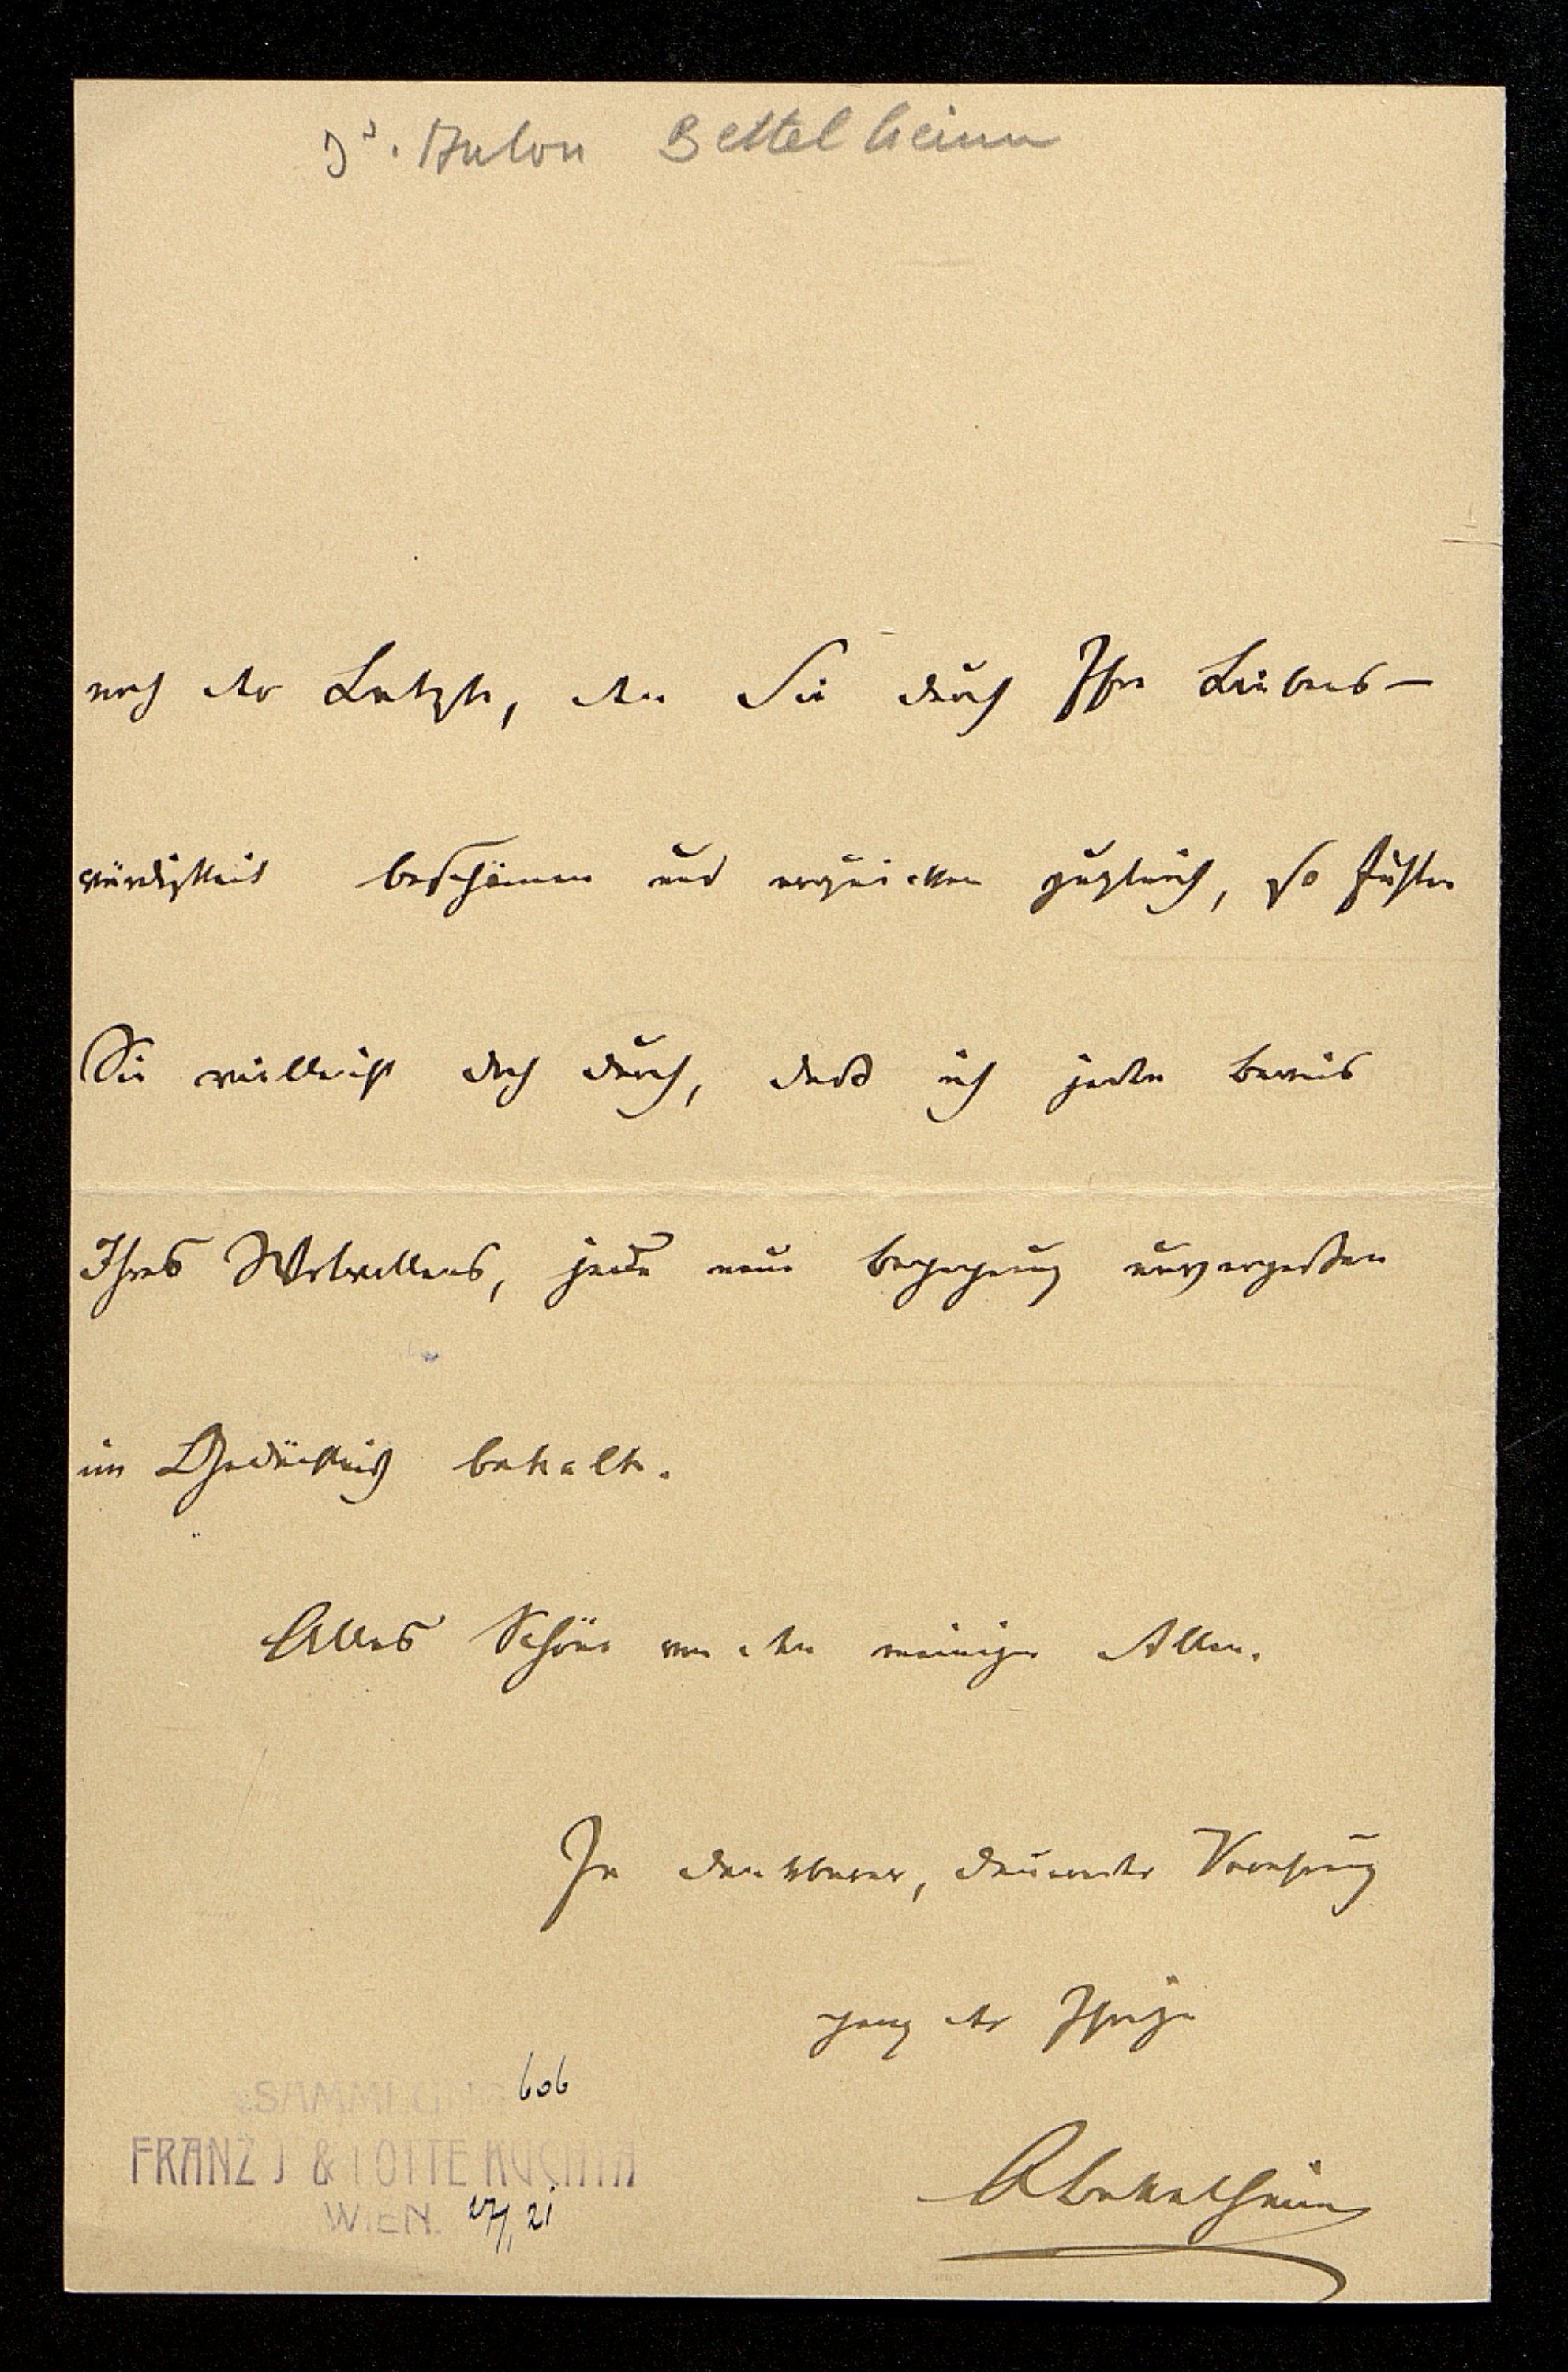 Dr. Anton Bettelheim
noch der Letzte, den Sie durch Ihre Liebens-
würdigkeit beschämen und erquicken zugleich, so fühlen
Sie vielleicht doch durch, dass ich jeden Beweis
Ihres Wolwollens, jede neue Begegnung unvergessen
im Gedächtniß behalte.
Alles Schöne von den meinigen Allen.
In dankbarer, dauernder Verehrung
ganz der Ihrige
ABettelheim
SAMMLUNG 606
FRANZ J & LOTTE KUCHTA
WIEN.